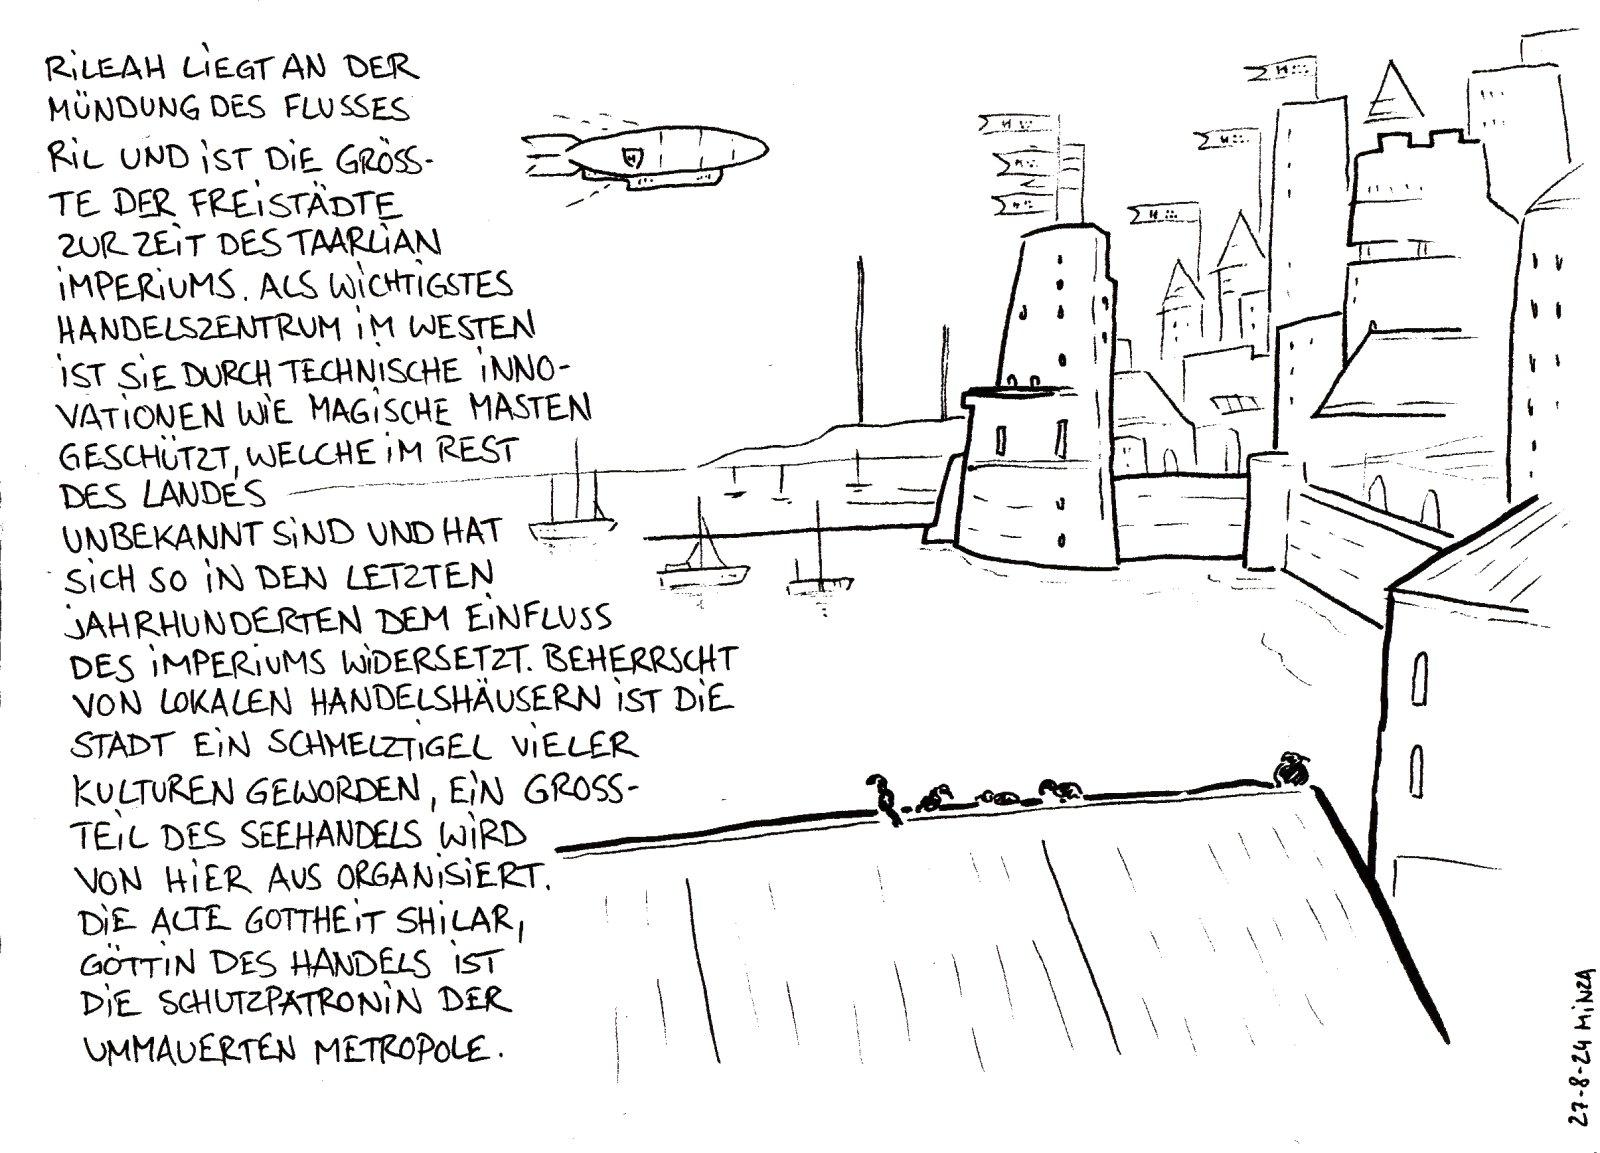 RILEAH LIEGT AN DER
MÜNDUNG DES FLUSSES
RIL UND IST DIE GRÖSS-
TE DER FREISTÄDTE
ZUR ZEIT DES TAARLIAN
IMPERIUMS. ALS WICHTIGSTES
HANDELSZENTRUM IM WESTEN
IST SIE DURCH TECHNISCHE INNO-
VATIONEN WIE MAGISCHE MASTEN
GESCHÜTZT, WELCHE IM REST
DES LANDES
UNBEKANNT SIND UND HAT
SICH SO IN DEN LETZTEN
JAHRHUNDERTEN DEM EINFLUSS
DES IMPERIUMS WIDERSETZT. BEHERRSCHT
VON LOKALEN HANDELSHÄUSERN IST DIE
STADT EIN SCHMELZTIGEL VIELER
KULTUREN GEWORDEN, EIN GROSS-
TEIL DES SEEHANDELS WIRD
VON HIER AUS ORGANISIERT.
DIE ALTE GOTTHEIT SHILAR,
GÖTTIN DES HANDELS IST
DIE SCHUTZPATRONIN DER
UMMAUERTEN METROPOLE.
27-8-24 MINZA